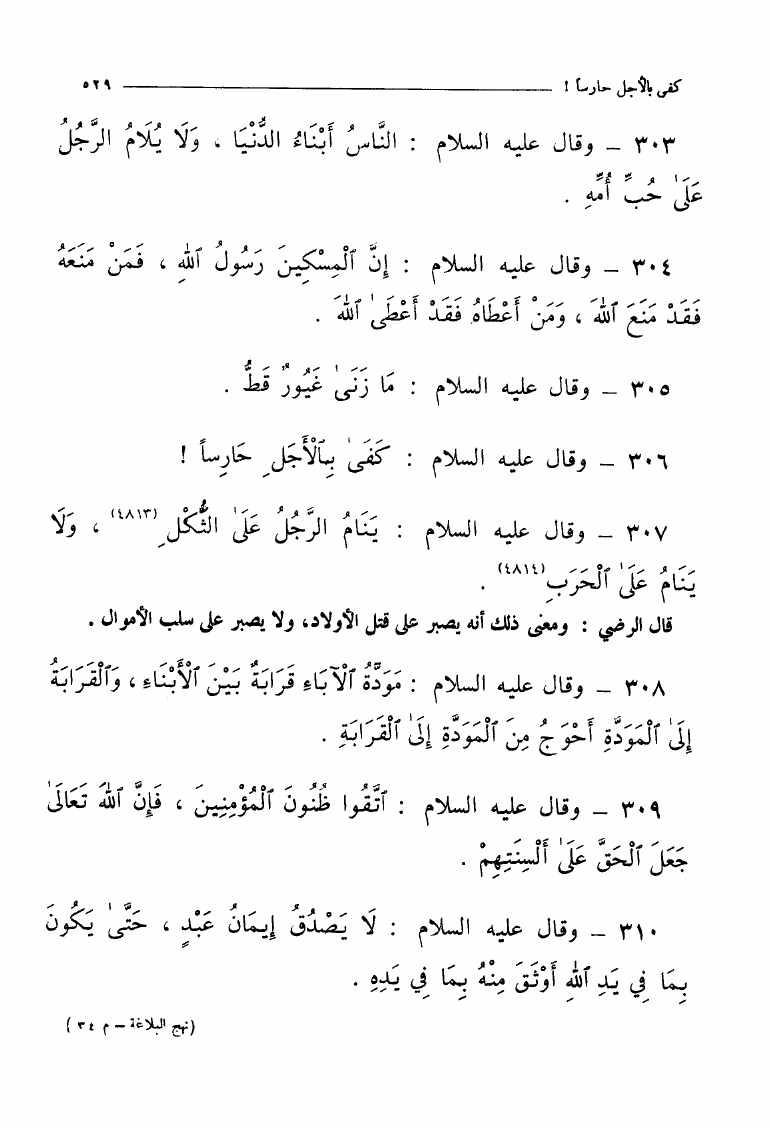 كفى بالأجل حارساً ! ٥٢٩
٣٠٣ – وقال عليه السلام : النَّاسُ أَبْنَاءُ الدُّنْيَا ، وَلَا يُلَامُ الرَّجُلُ
عَلَىٰ حُبِّ أُمِّهِ .
٣٠٤ – وقال عليه السلام : إِنَّ ٱلْمِسْكِينَ رَسُولُ ٱللهِ ، فَمَنْ مَنَعَهُ
فَقَدْ مَنَعَ ٱللهَ ، وَمَنْ أَعْطَاهُ فَقَدْ أَعْطَىٰ ٱللهَ .
٣٠٥ – وقال عليه السلام : مَا زَنَىٰ غَيُورٌ قَطُّ .
٣٠٦ – وقال عليه السلام : كَفَىٰ بِٱلْأَجَلِ حَارِساً !
٣٠٧ – وقال عليه السلام : يَنَامُ الرَّجُلُ عَلَىٰ الثُّكْلِ(٤٨١٣) ، وَلَا
يَنَامُ عَلَىٰ ٱلْحَرَبِ(٤٨١٤) .
قال الرضي : ومعنى ذلك أنه يصبر على قتل الأولاد، ولا يصبر على سلب الأموال .
٣٠٨ – وقال عليه السلام : مَوَدَّةُ ٱلْآبَاءِ قَرَابَةٌ بَيْنَ ٱلْأَبْنَاءِ ، وَٱلْقَرَابَةُ
إِلَىٰ ٱلْمَوَدَّةِ أَحْوَجُ مِنَ ٱلْمَوَدَّةِ إِلَىٰ ٱلْقَرَابَةِ .
٣٠٩ – وقال عليه السلام : ٱتَّقُوا ظُنُونَ ٱلْمُؤْمِنِينَ ، فَإِنَّ ٱللهَ تَعَالَىٰ
جَعَلَ ٱلْحَقَّ عَلَىٰ أَلْسِنَتِهِمْ .
٣١٠ – وقال عليه السلام : لَا يَصْدُقُ إِيمَانُ عَبْدٍ ، حَتَّىٰ يَكُونَ
بِمَا فِي يَدِ ٱللهِ أَوْثَقَ مِنْهُ بِمَا فِي يَدِهِ .
(نهج البلاغة – م ٣٤)